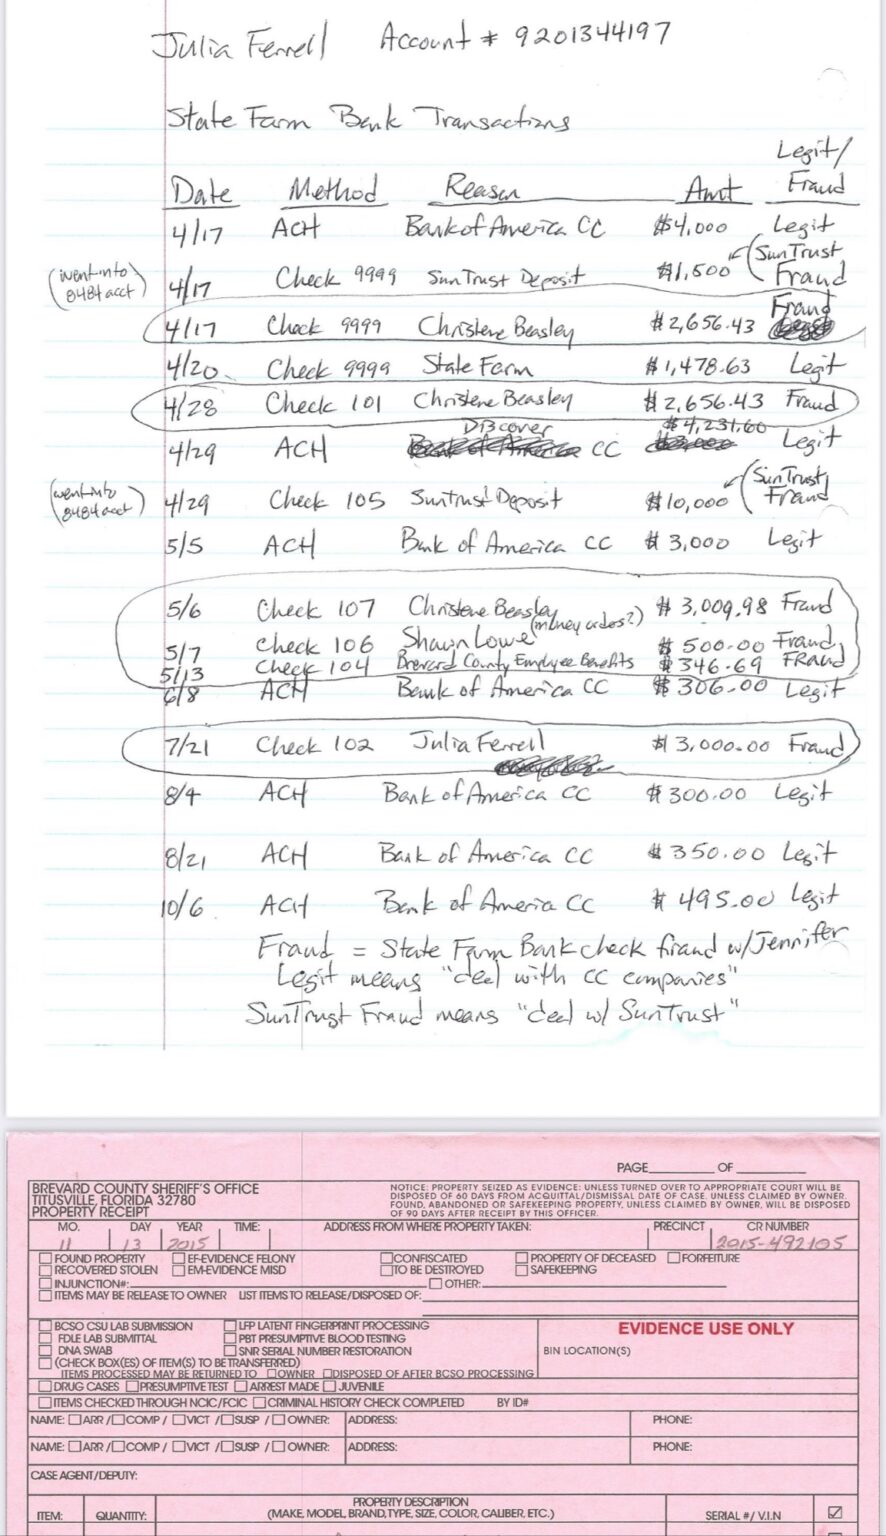 Julia Ferrell Account # 9201344197
State Farm Bank Transactions
Legit/
Date Method Reason Amt Fraud
4/17 ACH Bank of America CC $4,000 Legit
(went into 8484 acct) 4/17 Check 9999 SunTrust Deposit $1,500 (SunTrust Fraud
4/17 Check 9999 Christene Beasley $2,656.43 Fraud
4/20 Check 9999 State Farm $1,478.63 Legit
4/28 Check 101 Christene Beasley $2,656.43 Fraud
4/29 ACH Discover CC $4,231.60 Legit
(went into 8484 acct) 4/29 Check 105 Suntrust Deposit $10,000 (SunTrust Fraud
5/5 ACH Bank of America CC $3,000 Legit
5/6 Check 107 Christene Beasley $3,009.98 Fraud
5/7 Check 106 Shawn Lowe (money orders?) $500.00 Fraud
5/13 Check 104 Brevard County Employee Benefits $346.69 FRaud
6/8 ACH Bank of America CC $306.00 Legit
7/21 Check 102 Julia Ferrell $3,000.00 Fraud
8/4 ACH Bank of America CC $300.00 Legit
8/21 ACH Bank of America CC $350.00 Legit
10/6 ACH Bank of America CC $495.00 Legit
Fraud = State Farm Bank check fraud w/Jennifer
Legit means "deal with CC companies"
SunTrust Fraud means "deal w/ SunTrust"
PAGE OF
BREVARD COUNTY SHERIFF'S OFFICE
TITUSVILLE, FLORIDA 32780
PROPERTY RECEIPT
NOTICE: PROPERTY SEIZED AS EVIDENCE: UNLESS TURNED OVER TO APPROPRIATE COURT WILL BE
DISPOSED OF 60 DAYS FROM ACQUITTAL/DISMISSAL DATE OF CASE. UNLESS CLAIMED BY OWNER.
FOUND, ABANDONED OR SAFEKEEPING PROPERTY, UNLESS CLAIMED BY OWNER, WILL BE DISPOSED
OF 90 DAYS AFTER RECEIPT BY THIS OFFICER.
MO. DAY YEAR TIME: ADDRESS FROM WHERE PROPERTY TAKEN: PRECINCT CR NUMBER
11 13 2015 2015-492105
FOUND PROPERTY EF-EVIDENCE FELONY CONFISCATED PROPERTY OF DECEASED FORFEITURE
RECOVERED STOLEN EM-EVIDENCE MISD TO BE DESTROYED SAFEKEEPING
INJUNCTION#: OTHER:
ITEMS MAY BE RELEASE TO OWNER LIST ITEMS TO RELEASE/DISPOSED OF:
BCSO CSU LAB SUBMISSION LFP LATENT FINGERPRINT PROCESSING
FDLE LAB SUBMITTAL PBT PRESUMPTIVE BLOOD TESTING
DNA SWAB SNR SERIAL NUMBER RESTORATION
(CHECK BOX(ES) OF ITEM(S) TO BE TRANSFERRED)
ITEMS PROCESSED MAY BE RETURNED TO OWNER DISPOSED OF AFTER BCSO PROCESSING
EVIDENCE USE ONLY
BIN LOCATION(S)
DRUG CASES PRESUMPTIVE TEST ARREST MADE JUVENILE
ITEMS CHECKED THROUGH NCIC/FCIC CRIMINAL HISTORY CHECK COMPLETED BY ID#
NAME: ARR / COMP / VICT / SUSP / OWNER: ADDRESS: PHONE:
NAME: ARR / COMP / VICT / SUSP / OWNER: ADDRESS: PHONE:
CASE AGENT/DEPUTY:
PROPERTY DESCRIPTION
ITEM: QUANTITY: (MAKE, MODEL, BRAND, TYPE, SIZE, COLOR, CALIBER, ETC.) SERIAL #/ V.I.N